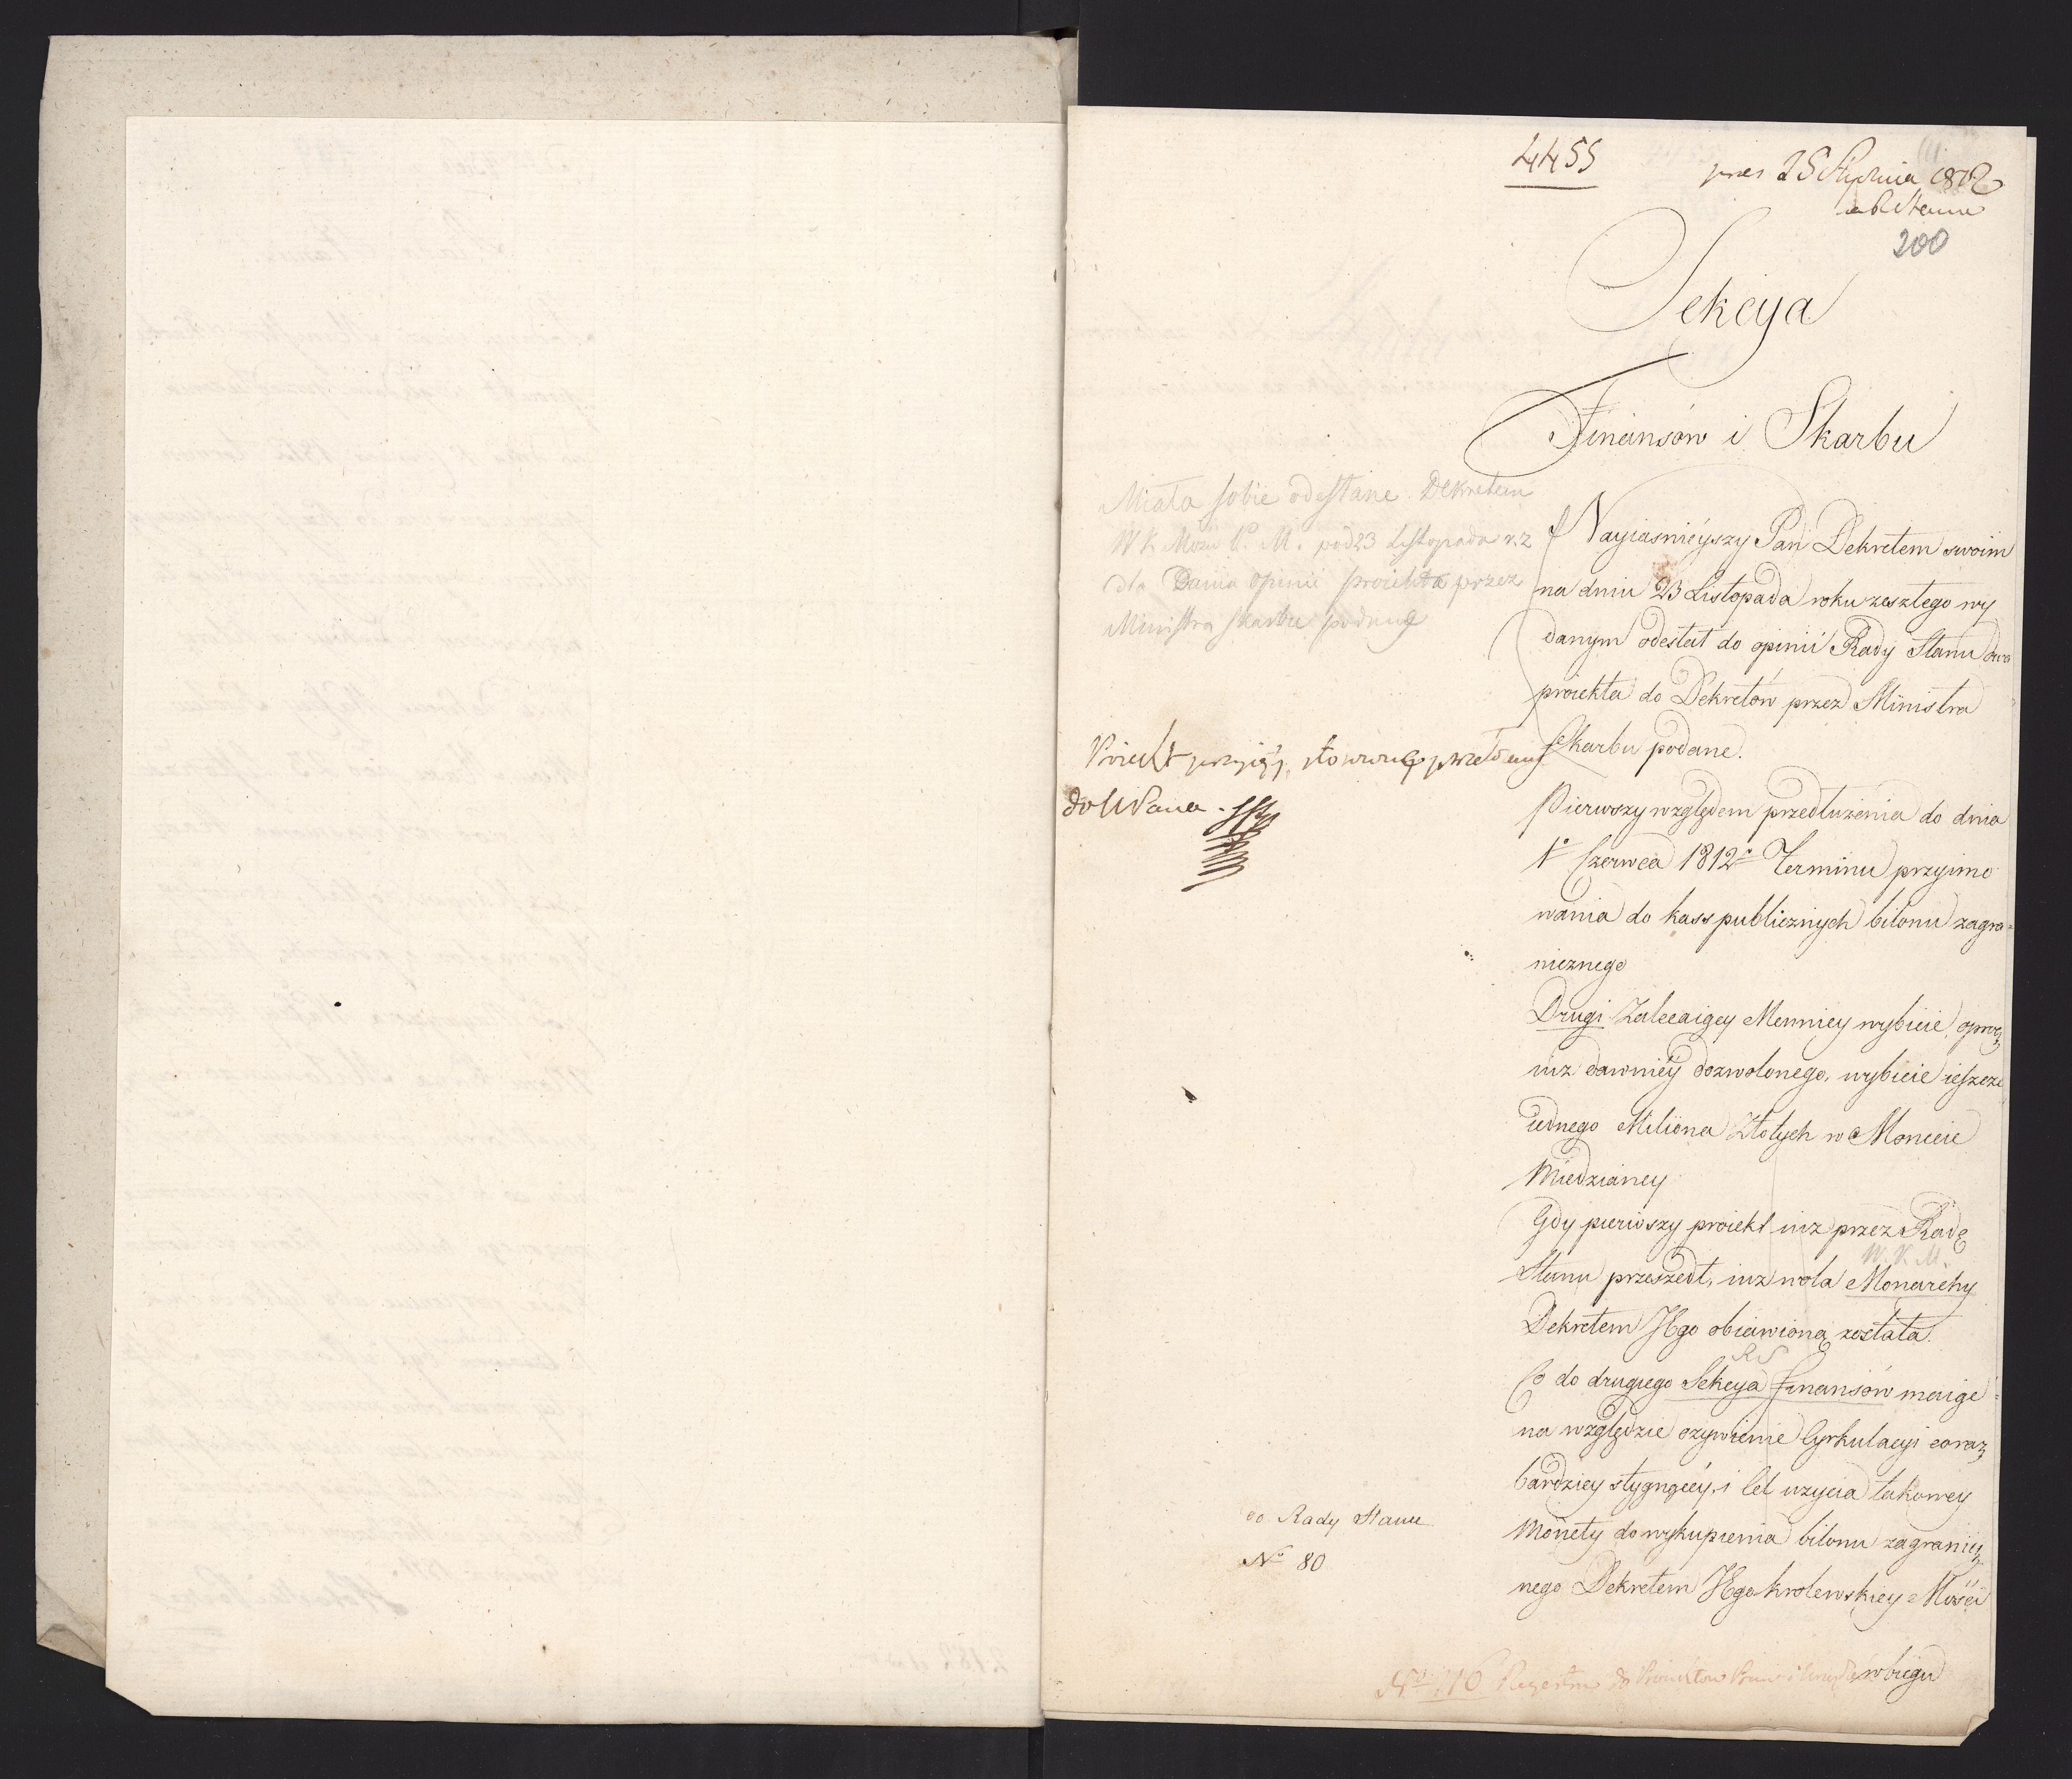 4455
pres 25 Stycznia 1812
200
Sekcya
Finansow i Skarbu
Miała sobie odesłane Dekretem
W. K. Mości P. M. pod 23 Listopada r. z
dla Dania opinii proiekta przez
Ministra Skarbu podane
Nayiasnieyszy Pan Dekretem swoim
na dniu 23 Listopada roku zeszłego wy
danym odesłał do opinii Rady Stanu dwa
proiekta do Dekretów przez Ministra
Skarbu podane.
Proiekt przyięty,
do NPana.
Pierwszy względem przedłużenia do dnia
1o Czerwca 1812r Terminu przyimo
wania do kass publicznych bilonu zagra=
nicznego
Drugi Zalecaiący Mennicy wybicie, oprocz
iuz dawniey dozwolonego, wybicie ieszcze
iednego Miliona Złotych w Monecie
Miedzianey
Gdy pierwszy proiekt iuz przez Radę
W. K. M.
Stanu przeszedł, iuz wola Monarchy
Dekretem JEgo obiawioną została.
R S
Co do drugiego Sekcya Finansów maiąc
na względzie ozywienie Cyrkulacyi coraz
bardziey stygnącey, i Cel uzycia takowey
Monety do wykupienia bilonu zagranicz
nego Dekretem JEgo krolewskiey Mości
do Rady Stanu
No 80
w biegu
No 110